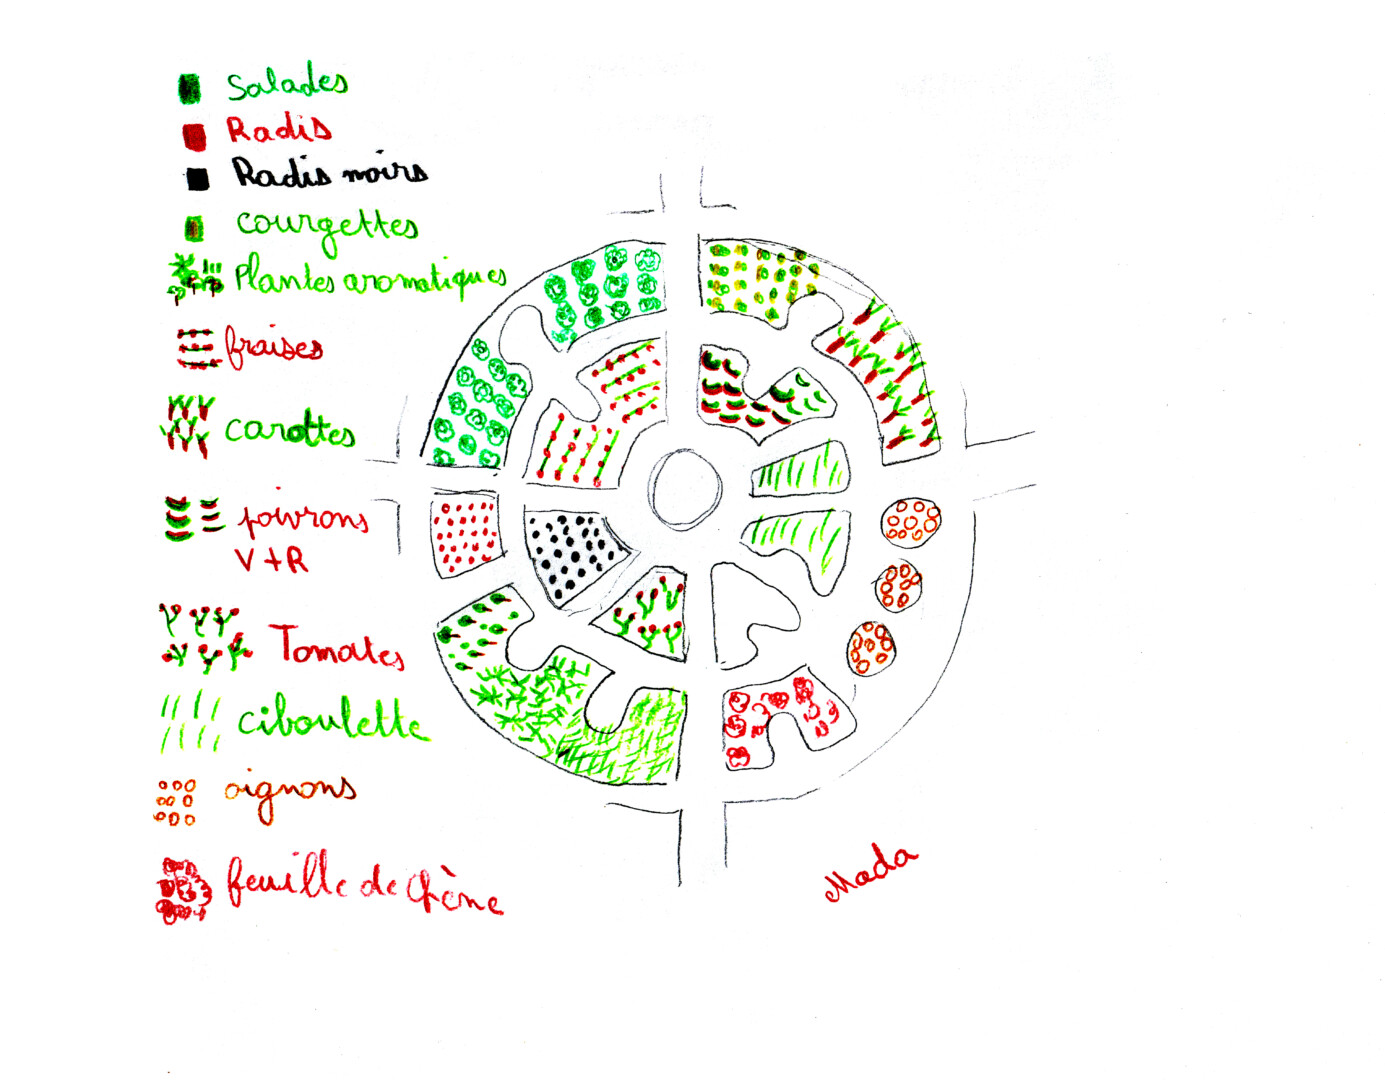 Salades
Radis
Radis noirs
courgettes
Plantes aromatiques
fraises
carottes
poivrons
V+R
Tomates
ciboulette
oignons
feuille de chêne
Mada